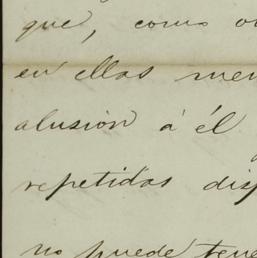 que, como
en ellas men
alusión á él
repetidas disp
no puede tene